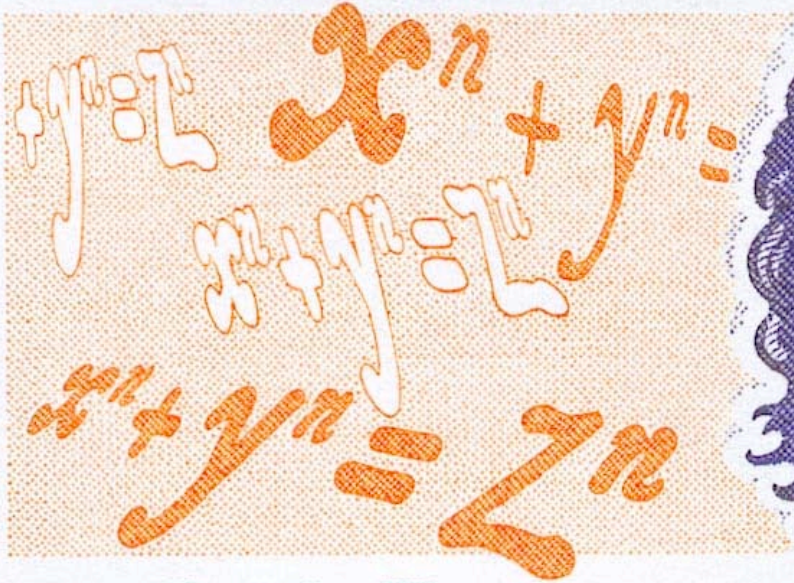 + yⁿ = zⁿ
xⁿ + yⁿ =
xⁿ + yⁿ = zⁿ
xⁿ + yⁿ = zⁿ